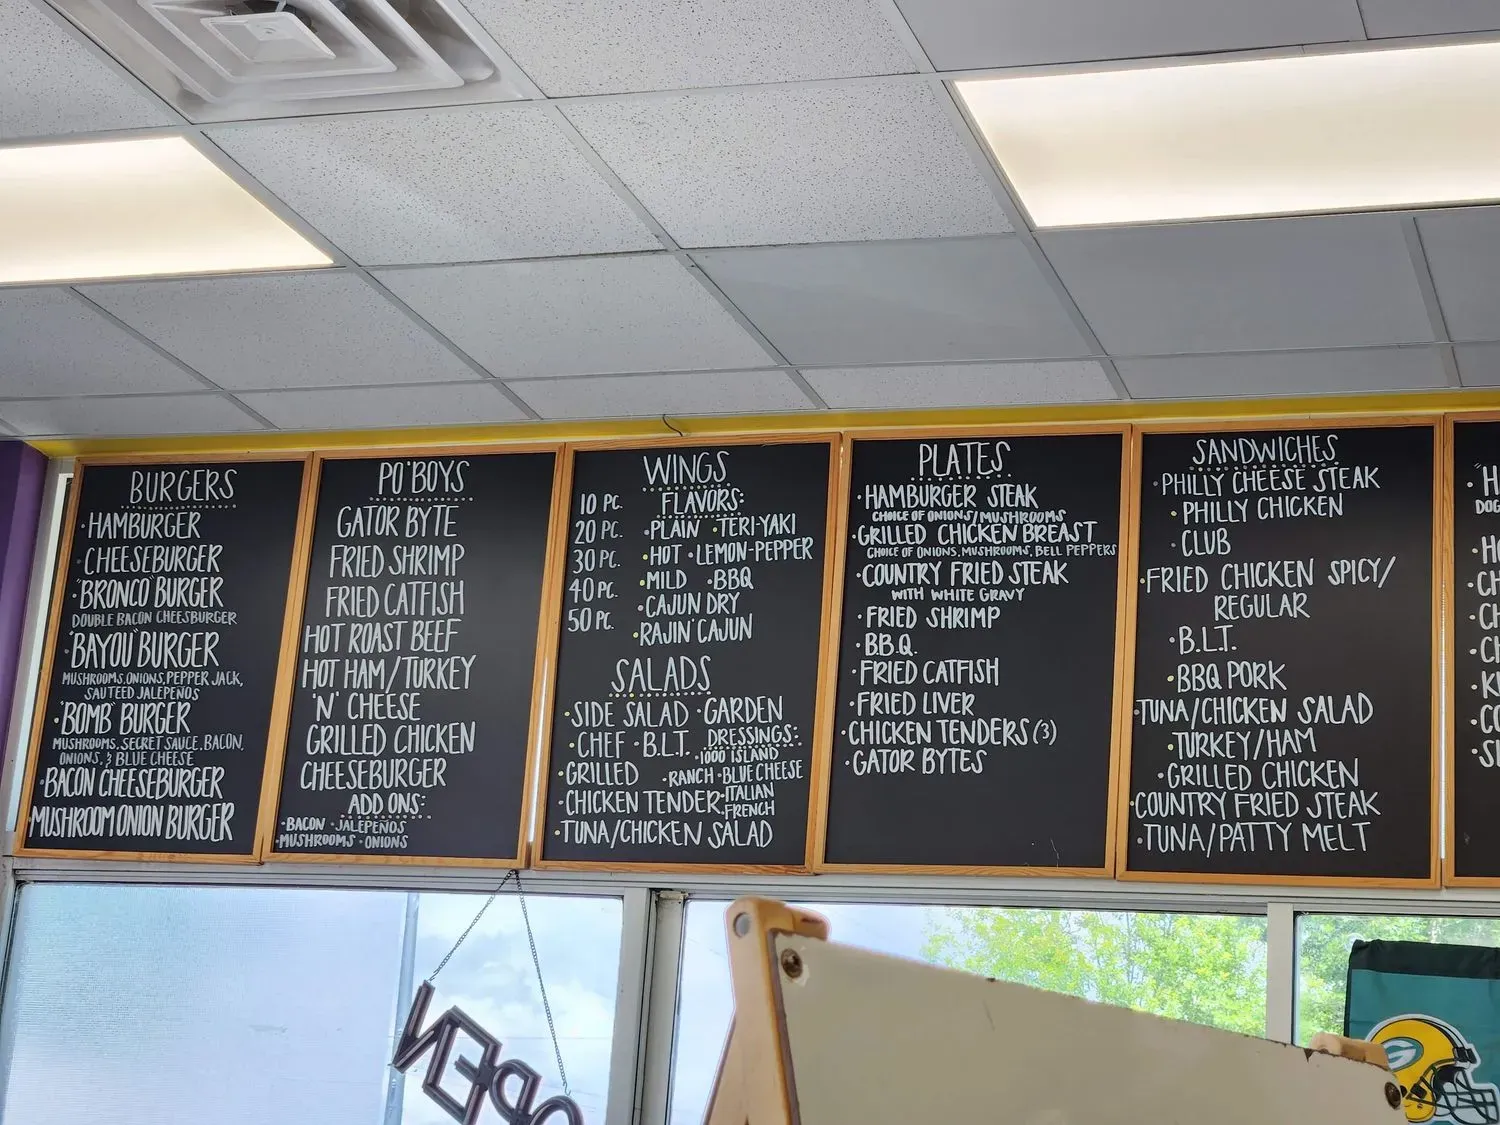 BURGERS
·HAMBURGER
·CHEESEBURGER
·"BRONCO" BURGER
DOUBLE BACON CHEESBURGER
·"BAYOU" BURGER
MUSHROOMS, ONIONS, PEPPER JACK,
SAUTEED JALEPEÑOS
·"BOMB" BURGER
MUSHROOMS, SECRET SAUCE, BACON,
ONIONS, & BLUE CHEESE
·BACON CHEESEBURGER
·MUSHROOM ONION BURGER
PO'BOYS
GATOR BYTE
FRIED SHRIMP
FRIED CATFISH
HOT ROAST BEEF
HOT HAM/TURKEY
'N' CHEESE
GRILLED CHICKEN
CHEESEBURGER
ADD ONS:
·BACON ·JALEPEÑOS
·MUSHROOMS ·ONIONS
WINGS
10 PC.
20 PC.
30 PC.
40 PC.
50 PC.
FLAVORS:
·PLAIN ·TERI-YAKI
·HOT ·LEMON-PEPPER
·MILD ·BBQ
·CAJUN DRY
·RAJIN' CAJUN
SALADS
·SIDE SALAD ·GARDEN
·CHEF ·B.L.T.
·GRILLED
·CHICKEN TENDER
·TUNA/CHICKEN SALAD
DRESSINGS:
·1000 ISLAND
·RANCH ·BLUE CHEESE
·ITALIAN
·FRENCH
PLATES
·HAMBURGER STEAK
CHOICE OF ONIONS/MUSHROOMS
·GRILLED CHICKEN BREAST
CHOICE OF ONIONS, MUSHROOMS, BELL PEPPERS
·COUNTRY FRIED STEAK
WITH WHITE GRAVY
·FRIED SHRIMP
·B.B.Q.
·FRIED CATFISH
·FRIED LIVER
·CHICKEN TENDERS (3)
·GATOR BYTES
SANDWICHES
·PHILLY CHEESE STEAK
·PHILLY CHICKEN
·CLUB
·FRIED CHICKEN SPICY/
REGULAR
·B.L.T.
·BBQ PORK
·TUNA/CHICKEN SALAD
·TURKEY/HAM
·GRILLED CHICKEN
·COUNTRY FRIED STEAK
·TUNA/PATTY MELT
OPEN